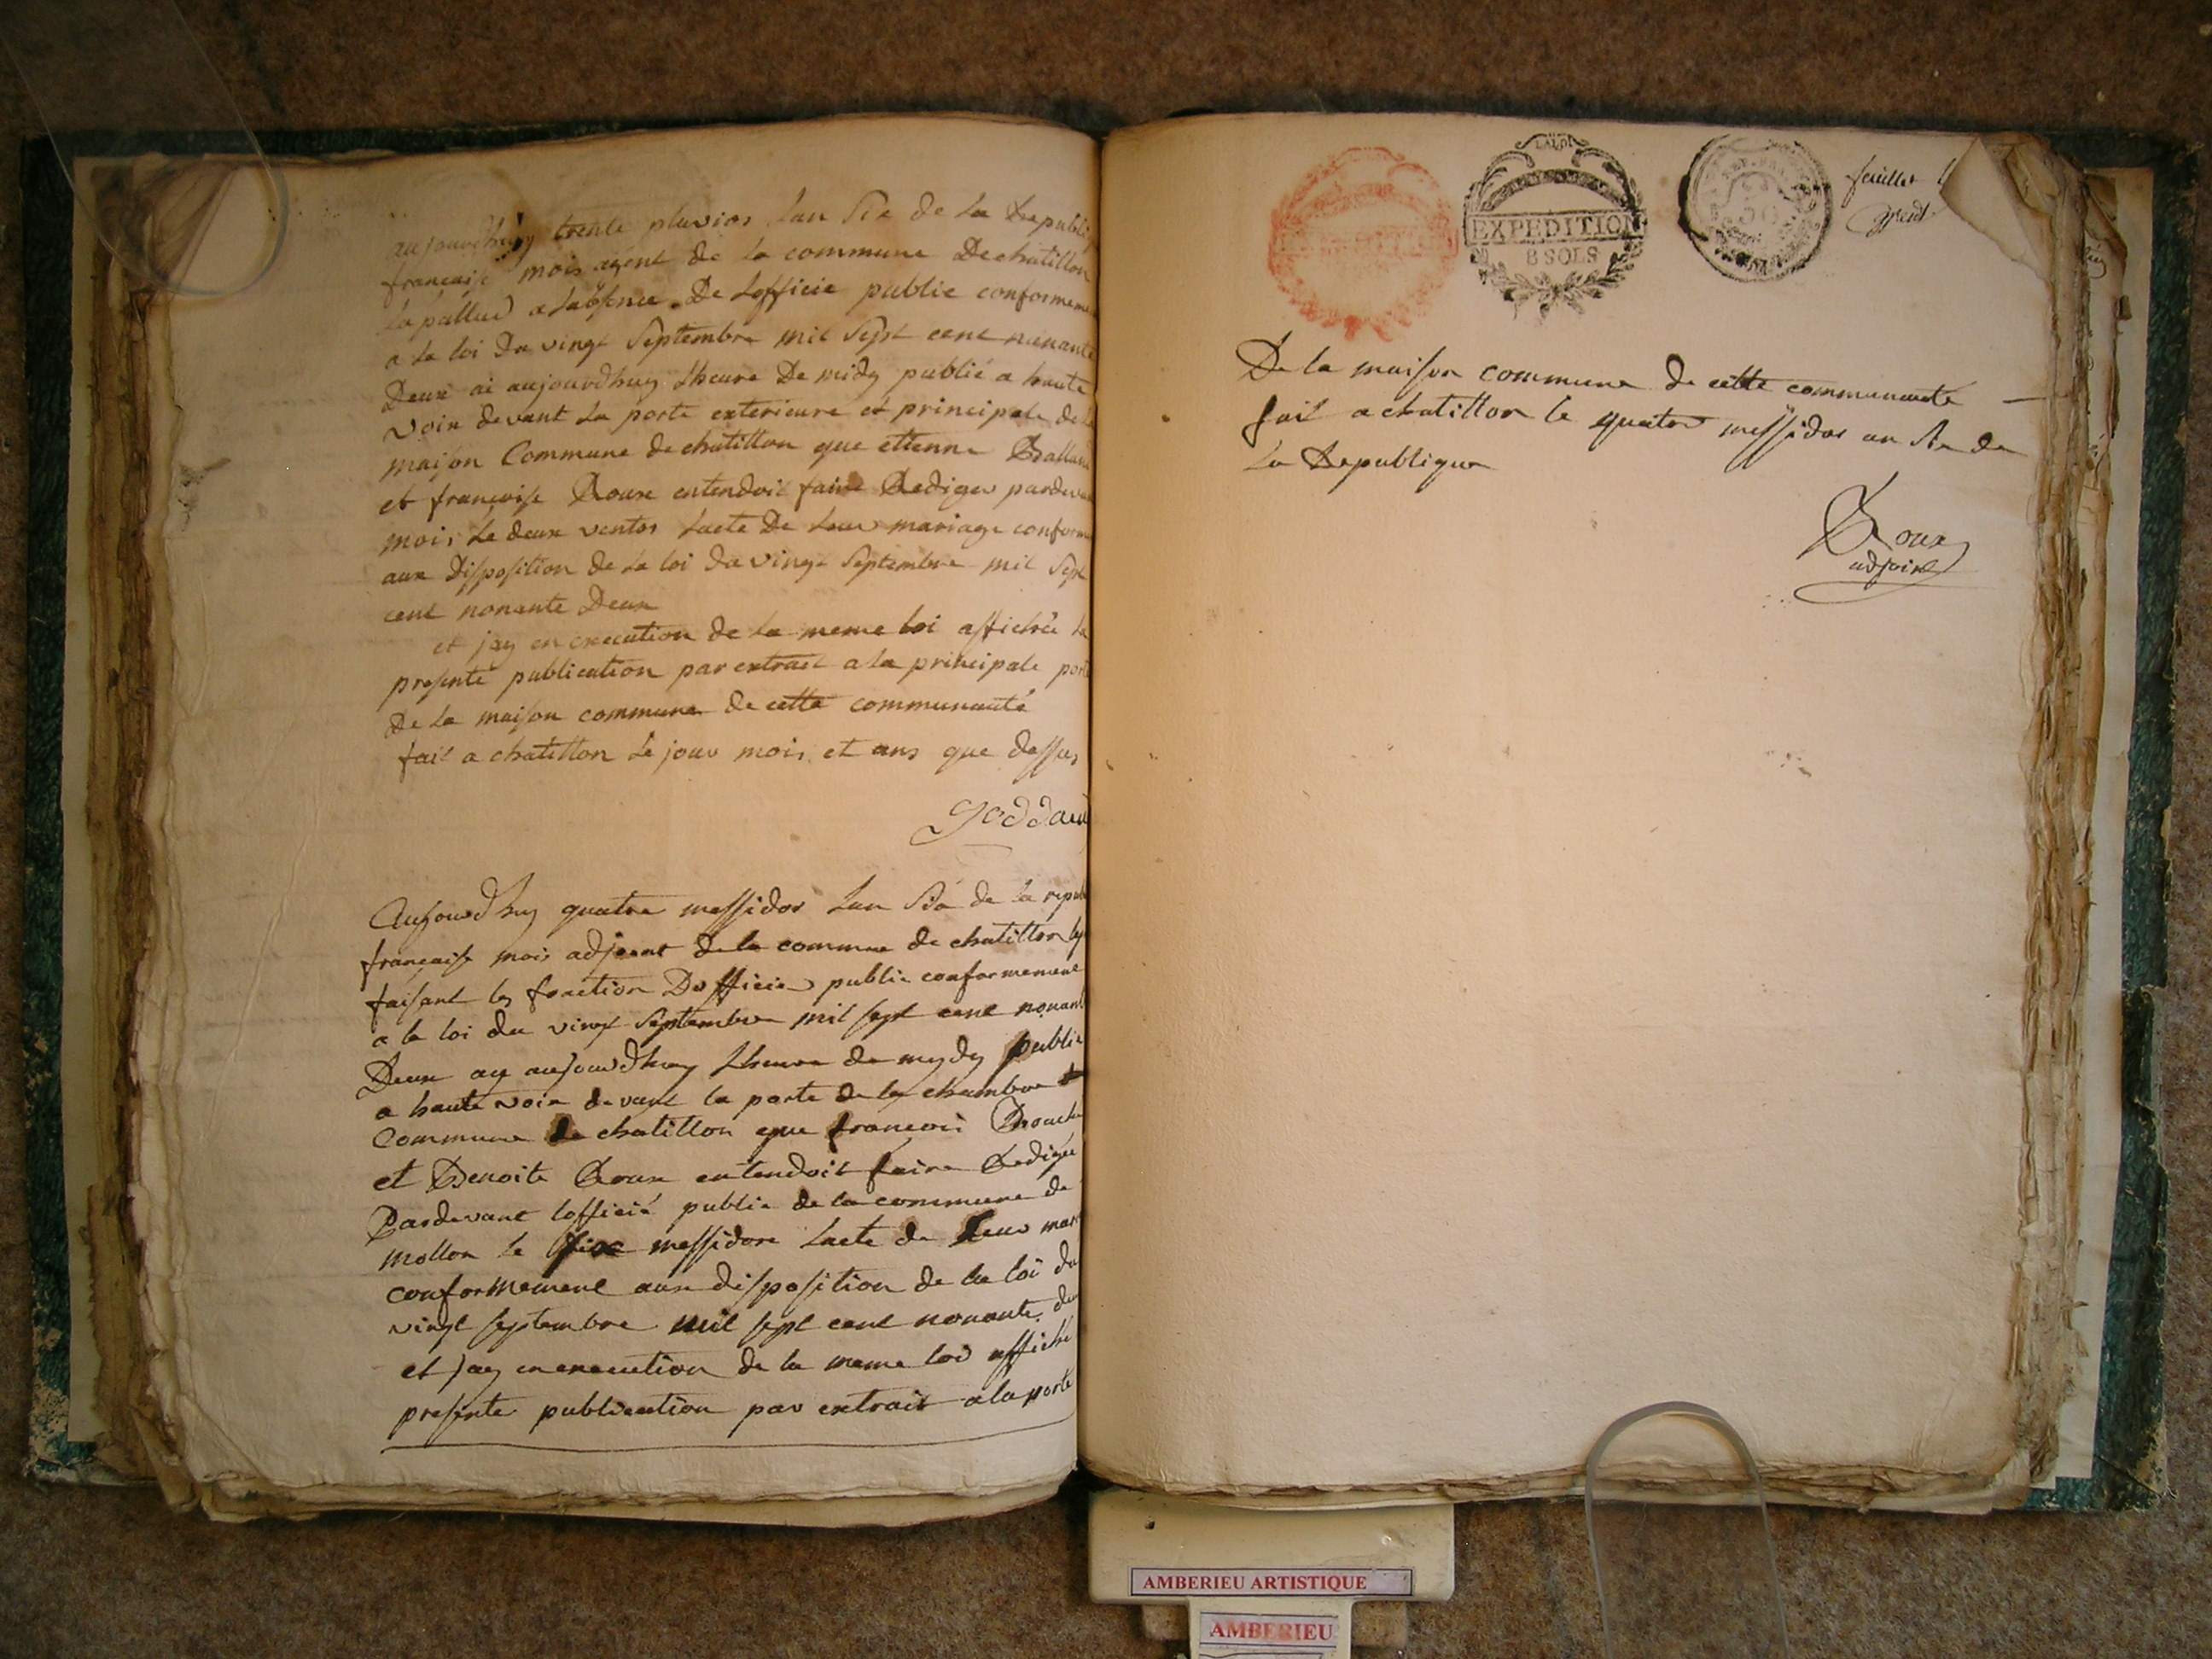 aujourdhuy trente pluvios lan Six de la Republi
francaise mois agent de la commune De chatillon
la pallud a labsence De Lofficie public conformeme
a la loi Du vingt Septembre mil Sept cent nonante
Deux ai aujourdhuy Lheure De midy publié a haute
voix devant La porte exterieure et principale de la
maison Commune de chatillon que ettenne Balland
et francoise Roux entendoit faire Rediger pardeva
mois Le deux ventos Lacte De Leur mariage conform
aux Disposition de La loi Du vingt Septembre mil Sept
cent nonante Deux
et jay en execution de La meme loi affichée la
presente publication par extrait a la principale porte
De La maison commune de cette communauté
fait a chatillon Le jour mois et ans que dessus
goddard
Aujourdhuy quatre messidor Lan Six de la repub
francaise mois adjoent de la commune de chatillon
faisant les fonction Dofficier public conformement
a la loi du vingt Septembre mil sept cent nonant
Deux ay aujourdhuy Lheure de mydy publie
a haute voix devant la porte de la chambre
Commune de chatillon que francois
et Benoite Roux entendoit faire Rediger
Pardevant lofficié public de la commune de
mollon le six messidore Lacte de Leur mari
conformement aux disposition de la loi du
vingt septembre mil sept cent nonante deu
et jay en execution de la meme loi affiché
presente publication par extrait a la porte
LA LOI
EXPEDITION
8 SOLS
feuillet
De la maison commune de cette communauté
fait a chatillon le quatre messidor an Six de
La Republique
Roux
adjoint
AMBERIEU ARTISTIQUE
AMBERIEU